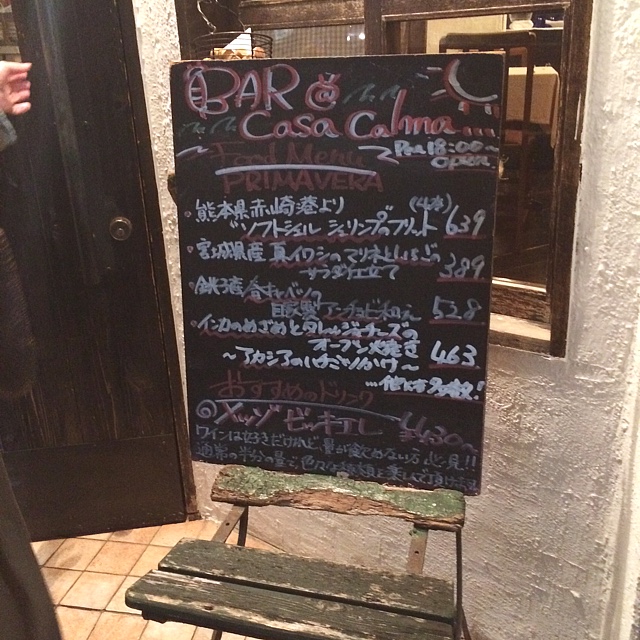 BAR @
Casa Calma...
P.M 18:00~
open
Food Menu
PRIMAVERA
熊本県赤崎港より (4本)
ソフトシェル シュリンプのフリット 639
宮城県産 真イワシのマリネといちごの
サラダ仕立て 389
銚子産 春キャベツ
自家製アンチョビ和え 528
インカのめざめとタレッジョチーズの
オーブン焼き
~アカシアのはちみつ ~ 463
...他にも多数!
おすすめのドリンク
メッゾ ビッキエレ ¥430~
ワインは好きだけれど、量が飲めない方 必見!!
通常の半分の量で色々な種類を楽しんで頂けます